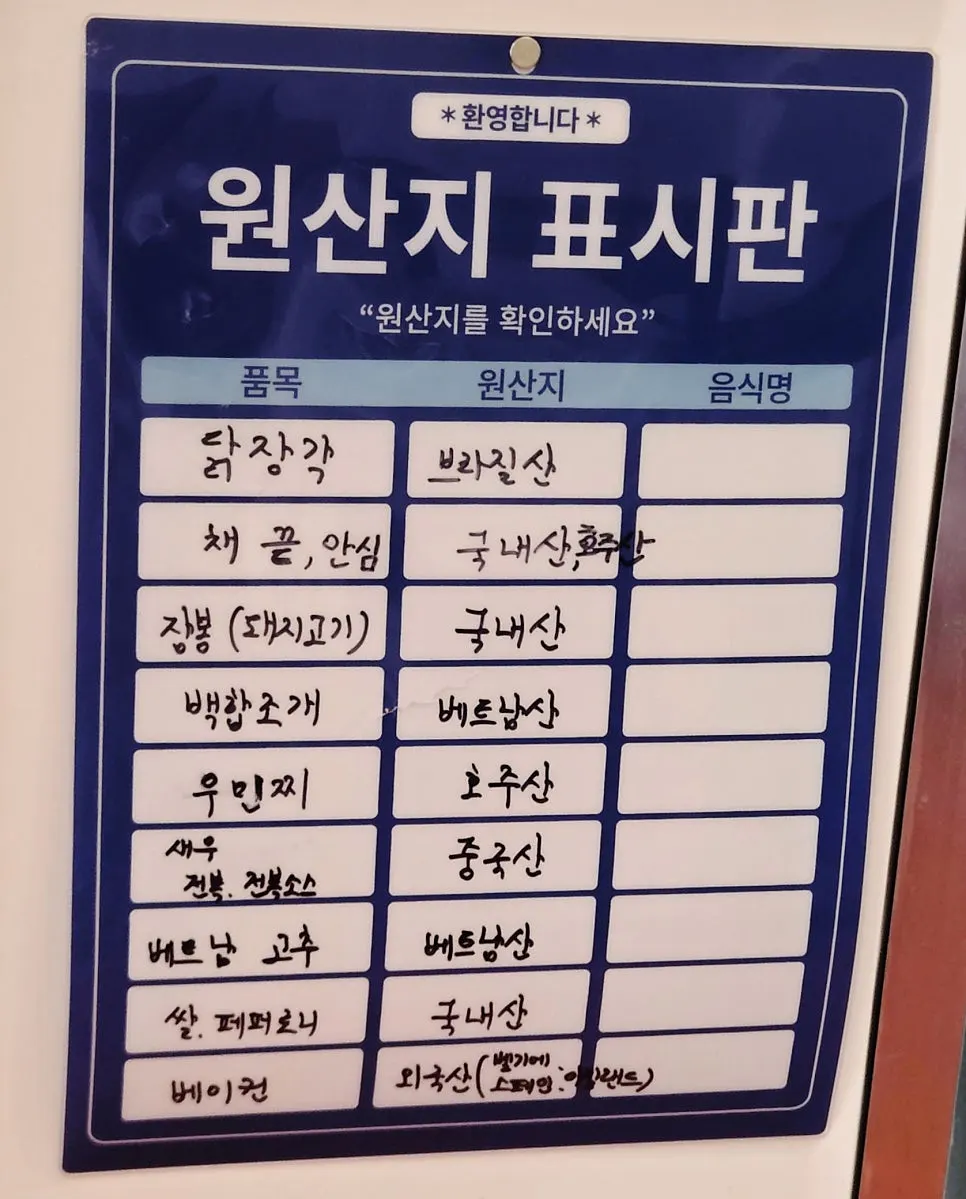 *환영합니다*
원산지 표시판
“원산지를 확인하세요”
품목 원산지 음식명
닭장각 브라질산
채끝, 안심 국내산, 호주산
잠봉 (돼지고기) 국내산
백합조개 베트남산
우민찌 호주산
새우
전복. 전복소스 중국산
베트남 고추 베트남산
쌀. 페퍼로니 국내산
베이컨 외국산(벨기에
스페인. 아일랜드)